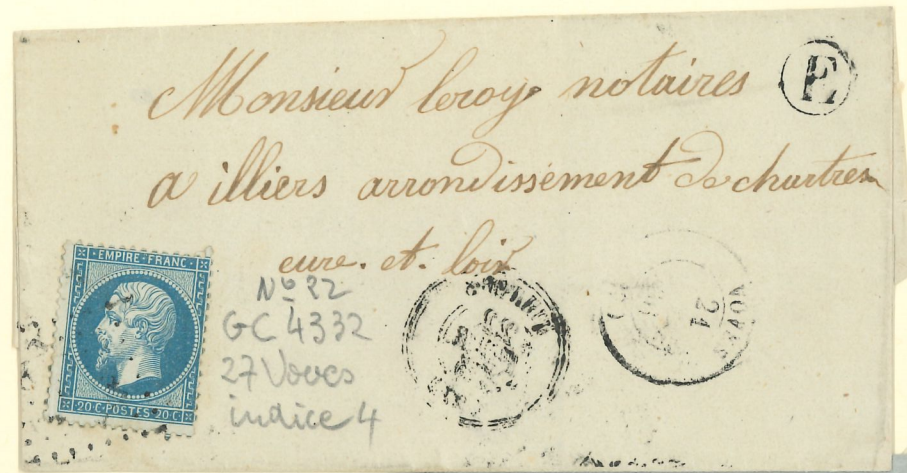 Monsieur leroy notaires
E
a illiers arrondissement de chartres
eure. et. loir
EMPIRE FRANC
20 C POSTES 20 C
No 22
GC 4332
27 Voves
indice 4
VOVES
24